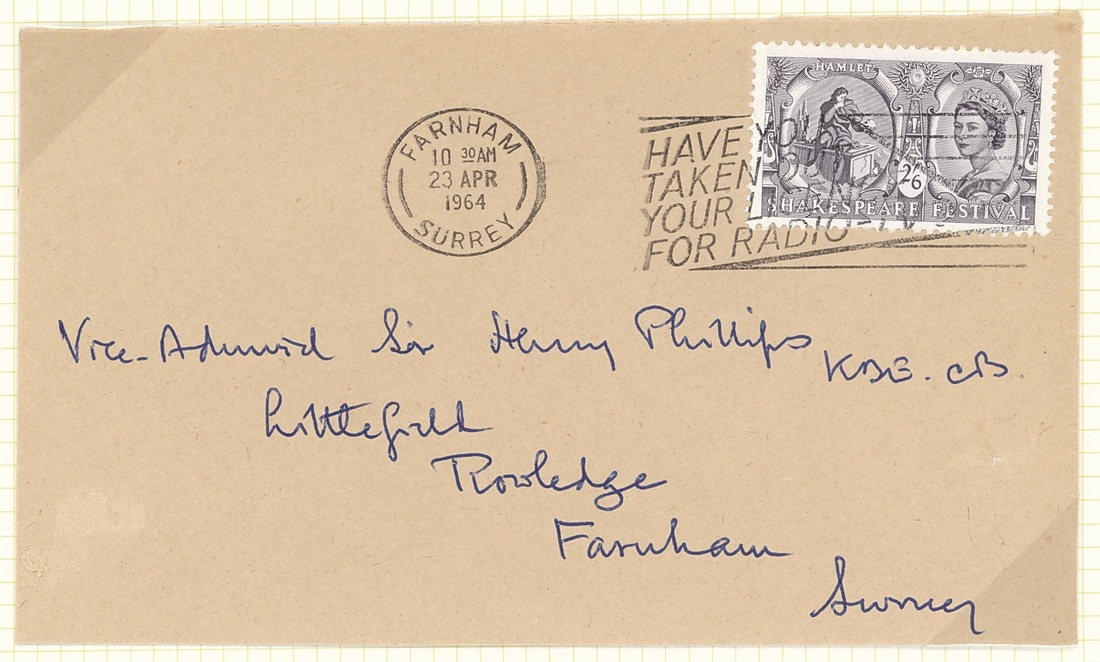 FARNHAM
10 30AM
23 APR
1964
SURREY
HAVE YOU
TAKEN
YOUR
FOR RADIO-TV
HAMLET
2/6
SHAKESPEARE FESTIVAL
Vice-Admiral Sir Henry Phillips KBE. CB.
Littlefield
Rowledge
Farnham
Surrey